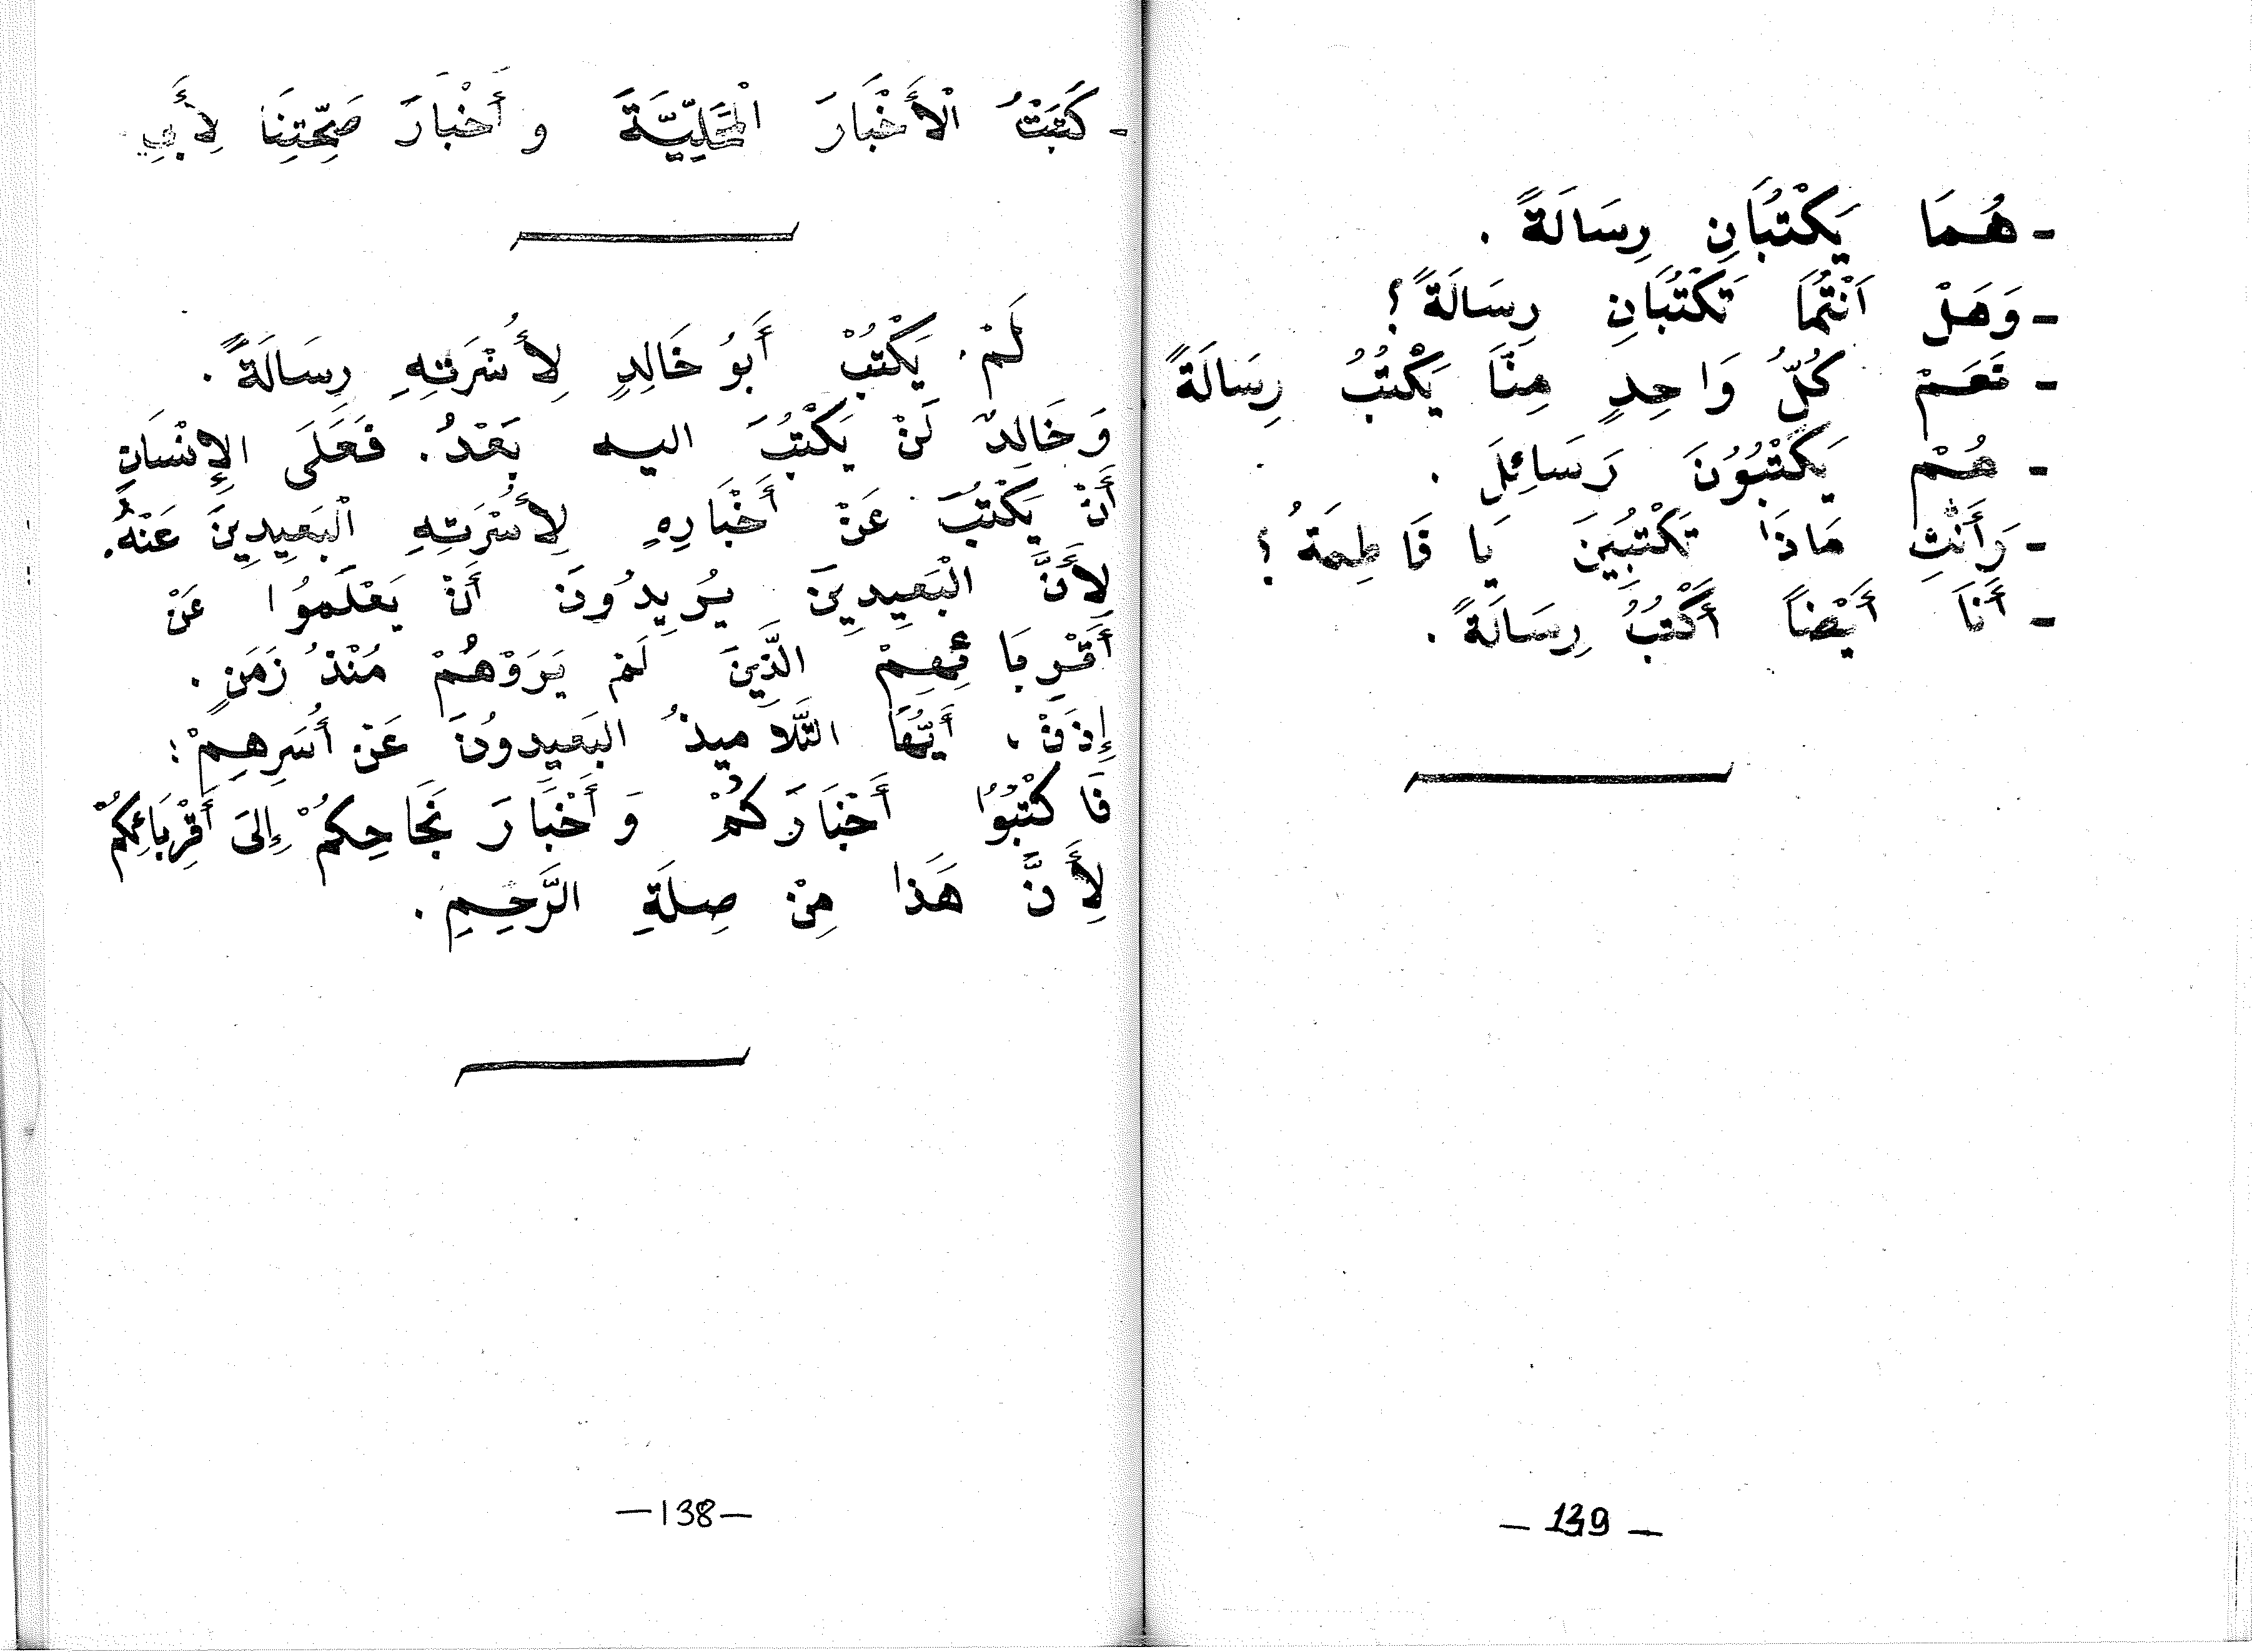 - كَتَبْتُ الْأَخْبَارَ الْمَحَلِّيَّةَ و أَخْبَارَ صَحَّتِنَا لِأَبِي.
لَمْ يَكْتُبْ أَبُو خَالِدٍ لِأُسْرَتِهِ رِسَالَةً .
وَخَالِدٌ لَنْ يَكْتُبَ اليه بَعْدُ. فَعَلَى الإِنْسَانِ
أَنْ يَكْتُبَ عَنْ أَخْبَارِهِ لِأُسْرَتِهِ الْبَعِيدِينَ عَنْهُ.
لِأَنَّ الْبَعِيدِينَ يُرِيدُونَ أَنْ يَعْلَمُوا عَنْ
أَقْرِبَائِهِمْ الَّذِينَ لَمْ يَرَوْهُمْ مُنْذُ زَمَنٍ .
إِذَنْ ، أَيُّهَا التَّلَامِيذُ البَعِيدُونَ عَنْ أُسَرِهِمْ :
فَاكْتُبُوا أَخْبَارَكُمْ وَ أَخْبَارَ نَجَاحِكُمْ إِلَى أَقْرِبَائِكُمْ
لِأَنَّ هَذَا مِنْ صِلَةِ الرَّحِيمِ .
—138—
- هُمَا يَكْتُبَانِ رِسَالَةً .
- وَهَلْ اَنْتُمَا تَكْتُبَانِ رِسَالَةً ؟
- نَعَمْ كُلُّ وَاحِدٍ مِنَّا يَكْتُبُ رِسَالَةً
- هُمْ يَكْتُبُوُنَ رَسَائِلَ .
- وَأَنْتِ مَاذَا تَكْتُبِينَ يَا فَاطِمَةُ ؟
- أَنَا أَيْضاً أَكْتُبُ رِسَالَةً .
— 139 —